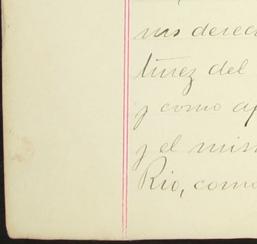 sus derec
tinez del
y como ap
y el mism
Rio, como